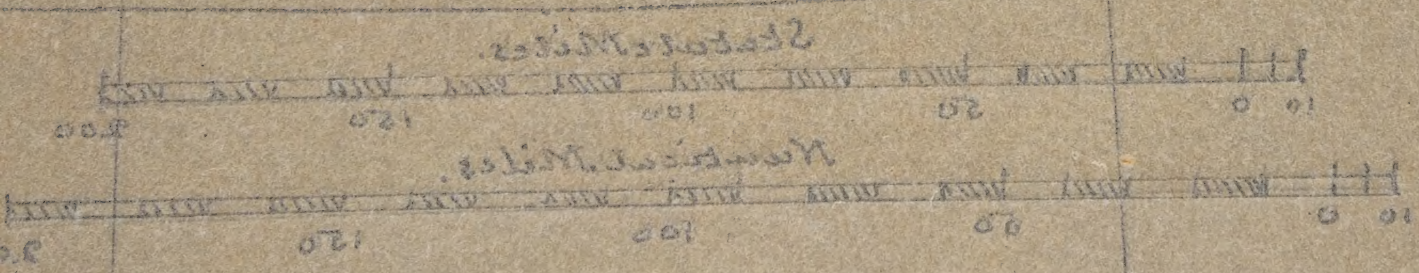 Statute Miles.
10 0 50 100 150 200
Nautical Miles.
10 0 50 100 150